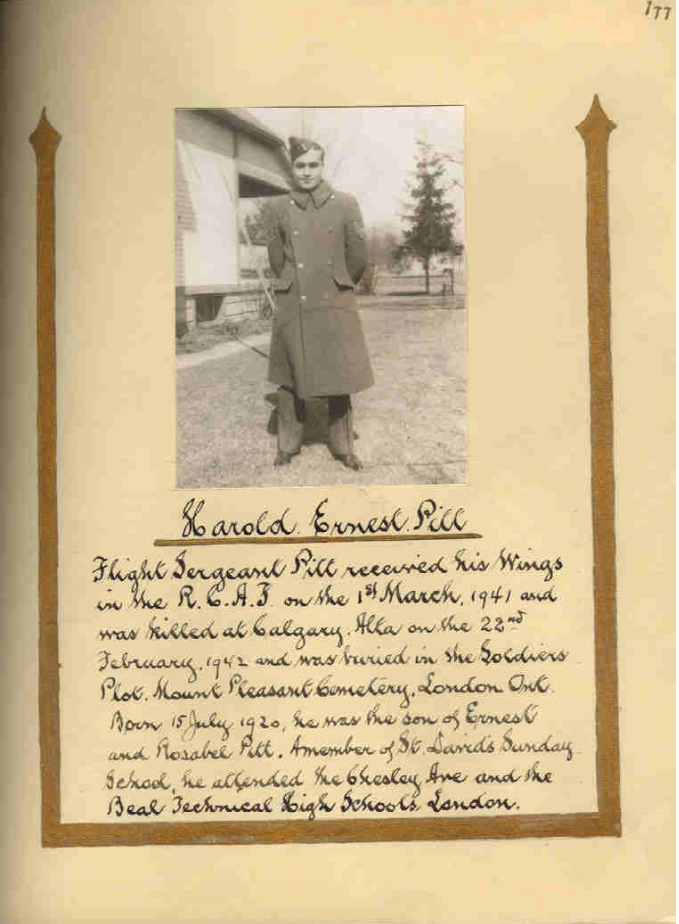 177
Harold. Ernest. Pitt
Flight Sergeant Pitt received his Wings
in the R.C.A.F. on the 1st March, 1941 and
was killed at Calgary. Alta on the 22nd
February, 1942 and was buried in the Soldiers
Plot. Mount Pleasant Cemetery, London Ont.
Born 15 July 1920, he was the son of Ernest
and Rosabel Pitt. A member of St. Davids Sunday
School, he attended the Chesley Ave and the
Beal Technical High Schools London.